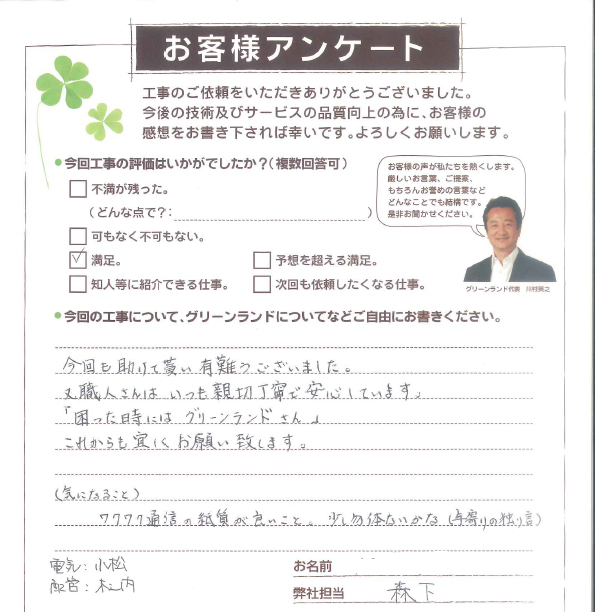 お客様アンケート
工事のご依頼をいただきありがとうございました。
今後の技術及びサービスの品質向上の為に、お客様の
感想をお書き下されば幸いです。よろしくお願いします。
●今回工事の評価はいかがでしたか?(複数回答可)
お客様の声が私たちを熱くします。
厳しいお言葉、ご提案、
もちろんお誉めの言葉など
どんなことでも結構です。
是非お聞かせください。
不満が残った。
(どんな点で?: )
可もなく不可もない。
満足。 予想を超える満足。
知人等に紹介できる仕事。 次回も依頼したくなる仕事。
グリーンランド代表 川村英之
●今回の工事について、グリーンランドについてなどご自由にお書きください。
今回も助けて貰い有難うございました。
又職人さんは いつも親切丁寧で安心しています。
「困った時には グリーンランドさん」
これからも宜しくお願い致します。
(気になること)
ワクワク通信の紙質が良いこと。少し勿体ないかな(年寄りの独り言)
電気: 小松
お名前
配管: 木之内
弊社担当 森下